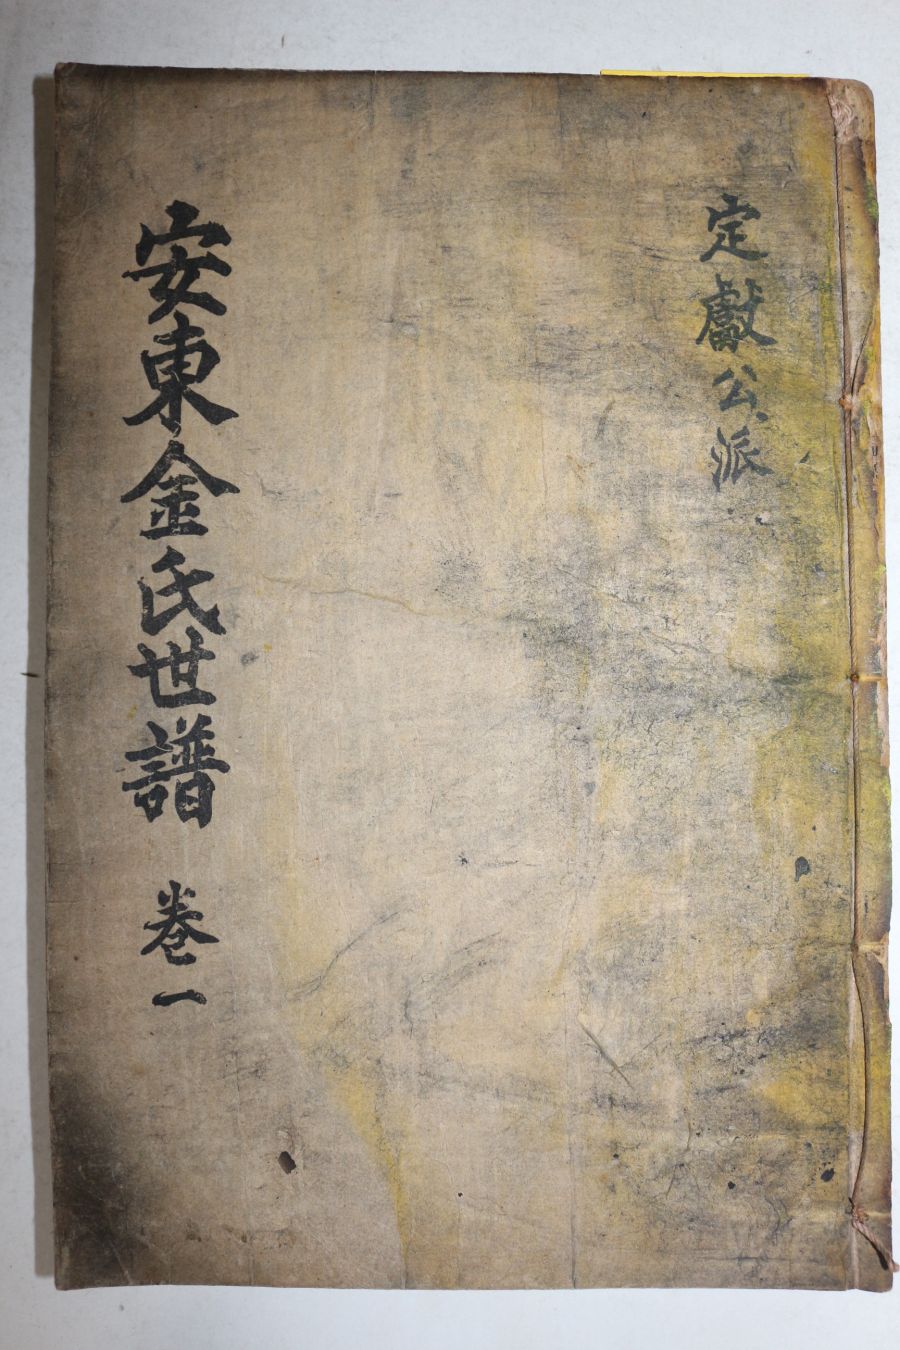 定獻公派
安東金氏世譜 卷一